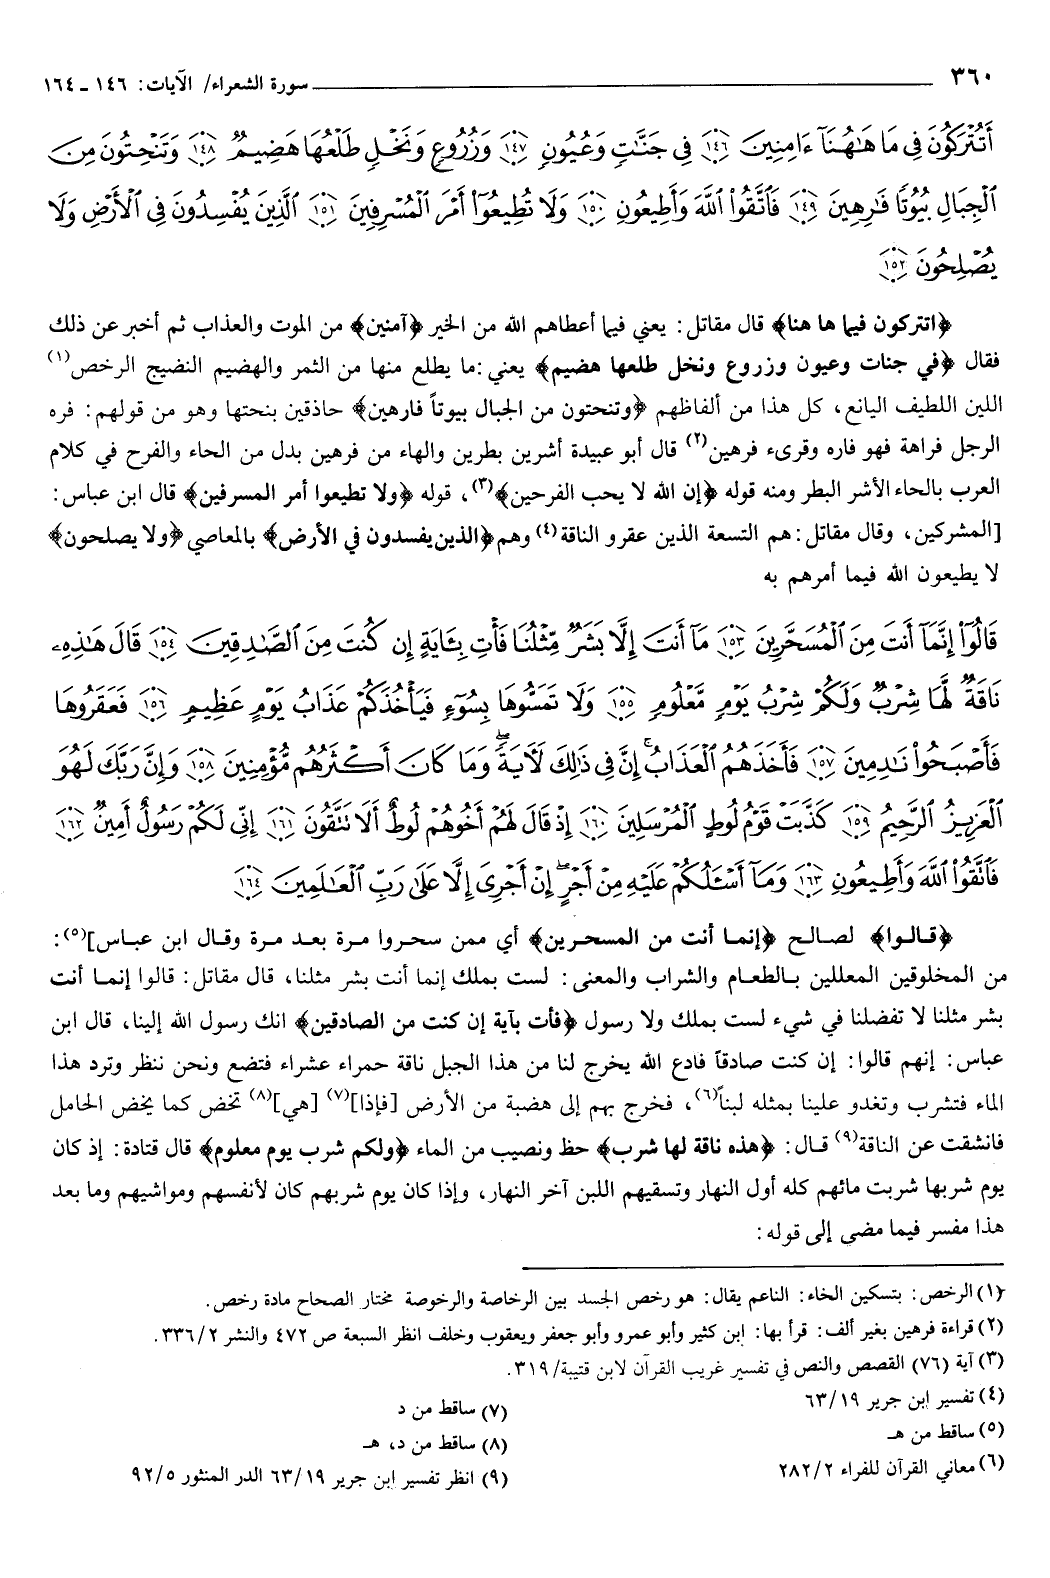 ٣٦٠ سورة الشعراء/ الآيات: ١٤٦ ـ ١٦٤
أَتُتْرَكُونَ فِي مَا هَٰهُنَآ ءَامِنِينَ ﴿١٤٦﴾ فِي جَنَّٰتٍ وَعُيُونٍ ﴿١٤٧﴾ وَزُرُوعٍ وَنَخْلٍ طَلْعُهَا هَضِيمٌ ﴿١٤٨﴾ وَتَنْحِتُونَ مِنَ
ٱلْجِبَالِ بُيُوتًا فَٰرِهِينَ ﴿١٤٩﴾ فَٱتَّقُوا۟ ٱللَّهَ وَأَطِيعُونِ ﴿١٥٠﴾ وَلَا تُطِيعُوٓا۟ أَمْرَ ٱلْمُسْرِفِينَ ﴿١٥١﴾ ٱلَّذِينَ يُفْسِدُونَ فِي ٱلْأَرْضِ وَلَا
يُصْلِحُونَ ﴿١٥٢﴾
﴿اتتركون فيما ها هنا﴾ قال مقاتل: يعني فيما أعطاهم الله من الخير ﴿آمنين﴾ من الموت والعذاب ثم أخبر عن ذلك
فقال ﴿في جنات وعيون وزروع ونخل طلعها هضيم﴾ يعني: ما يطلع منها من الثمر والهضيم النضيج الرخص(١)
اللين اللطيف اليانع، كل هذا من ألفاظهم ﴿وتنحتون من الجبال بيوتاً فارهين﴾ حاذقين بنحتها وهو من قولهم: فره
الرجل فراهة فهو فاره وقرىء فرهين(٢) قال أبو عبيدة أشرين بطرين والهاء من فرهين بدل من الحاء والفرح في كلام
العرب بالحاء الأشر البطر ومنه قوله ﴿إن الله لا يحب الفرحين﴾(٣)، قوله ﴿ولا تطيعوا أمر المسرفين﴾ قال ابن عباس:
[المشركين، وقال مقاتل: هم التسعة الذين عقرو الناقة(٤) وهم ﴿الذين يفسدون في الأرض﴾ بالمعاصي ﴿ولا يصلحون﴾
لا يطيعون الله فيما أمرهم به
قَالُوٓا۟ إِنَّمَآ أَنتَ مِنَ ٱلْمُسَحَّرِينَ ﴿١٥٣﴾ مَآ أَنتَ إِلَّا بَشَرٌ مِّثْلُنَا فَأْتِ بِـَٔايَةٍ إِن كُنتَ مِنَ ٱلصَّٰدِقِينَ ﴿١٥٤﴾ قَالَ هَٰذِهِۦ
نَاقَةٌ لَّهَا شِرْبٌ وَلَكُمْ شِرْبُ يَوْمٍ مَّعْلُومٍ ﴿١٥٥﴾ وَلَا تَمَسُّوهَا بِسُوٓءٍ فَيَأْخُذَكُمْ عَذَابُ يَوْمٍ عَظِيمٍ ﴿١٥٦﴾ فَعَقَرُوهَا
فَأَصْبَحُوا۟ نَٰدِمِينَ ﴿١٥٧﴾ فَأَخَذَهُمُ ٱلْعَذَابُ ۗ إِنَّ فِي ذَٰلِكَ لَءَايَةً ۖ وَمَا كَانَ أَكْثَرُهُم مُّؤْمِنِينَ ﴿١٥٨﴾ وَإِنَّ رَبَّكَ لَهُوَ
ٱلْعَزِيزُ ٱلرَّحِيمُ ﴿١٥٩﴾ كَذَّبَتْ قَوْمُ لُوطٍ ٱلْمُرْسَلِينَ ﴿١٦٠﴾ إِذْ قَالَ لَهُمْ أَخُوهُمْ لُوطٌ أَلَا تَتَّقُونَ ﴿١٦١﴾ إِنِّي لَكُمْ رَسُولٌ أَمِينٌ ﴿١٦٢﴾
فَٱتَّقُوا۟ ٱللَّهَ وَأَطِيعُونِ ﴿١٦٣﴾ وَمَآ أَسْـَٔلُكُمْ عَلَيْهِ مِنْ أَجْرٍ ۖ إِنْ أَجْرِيَ إِلَّا عَلَىٰ رَبِّ ٱلْعَٰلَمِينَ ﴿١٦٤﴾
﴿قالوا﴾ لصالح ﴿إنما أنت من المسحرين﴾ أي ممن سحروا مرة بعد مرة وقال ابن عباس](٥):
من المخلوقين المعللين بالطعام والشراب والمعنى: لست بملك إنما أنت بشر مثلنا، قال مقاتل: قالوا إنما أنت
بشر مثلنا لا تفضلنا في شيء لست بملك ولا رسول ﴿فأت بآية إن كنت من الصادقين﴾ انك رسول الله إلينا، قال ابن
عباس: إنهم قالوا: إن كنت صادقاً فادع الله يخرج لنا من هذا الجبل ناقة حمراء عشراء فتضع ونحن ننظر وترد هذا
الماء فتشرب وتغدو علينا بمثله لبناً(٦)، فخرج بهم إلى هضبة من الأرض [فإذا](٧) [هي](٨) تمخض كما يمخض الحامل
فانشقت عن الناقة(٩) قال: ﴿هذه ناقة لها شرب﴾ حظ ونصيب من الماء ﴿ولكم شرب يوم معلوم﴾ قال قتادة: إذ كان
يوم شربها شربت مائهم كله أول النهار وتسقيهم اللبن آخر النهار، وإذا كان يوم شربهم كان لأنفسهم ومواشيهم وما بعد
هذا مفسر فيما مضى إلى قوله:
(١) الرخص: بتسكين الخاء: الناعم يقال: هو رخص الجسد بين الرخاصة والرخوصة مختار الصحاح مادة رخص.
(٢) قراءة فرهين بغير ألف: قرأ بها: ابن كثير وأبو عمرو وأبو جعفر ويعقوب وخلف انظر السبعة ص ٤٧٢ والنشر ٣٣٦/٢.
(٣) آية (٧٦) القصص والنص في تفسير غريب القرآن لابن قتيبة/ ٣١٩.
(٤) تفسير ابن جرير ٦٣/١٩
(٥) ساقط من هـ
(٦) معاني القرآن للفراء ٢٨٢/٢
(٧) ساقط من د
(٨) ساقط من د، هـ
(٩) انظر تفسير ابن جرير ٦٣/١٩ الدر المنثور ٩٢/٥